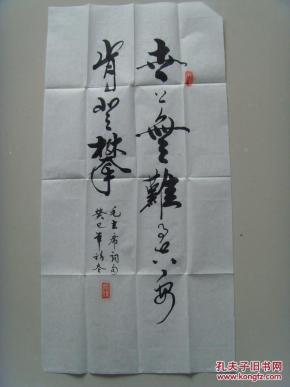 世上無難事只要
肯登攀
毛主席詞句
癸巳年初冬
孔夫子旧书网